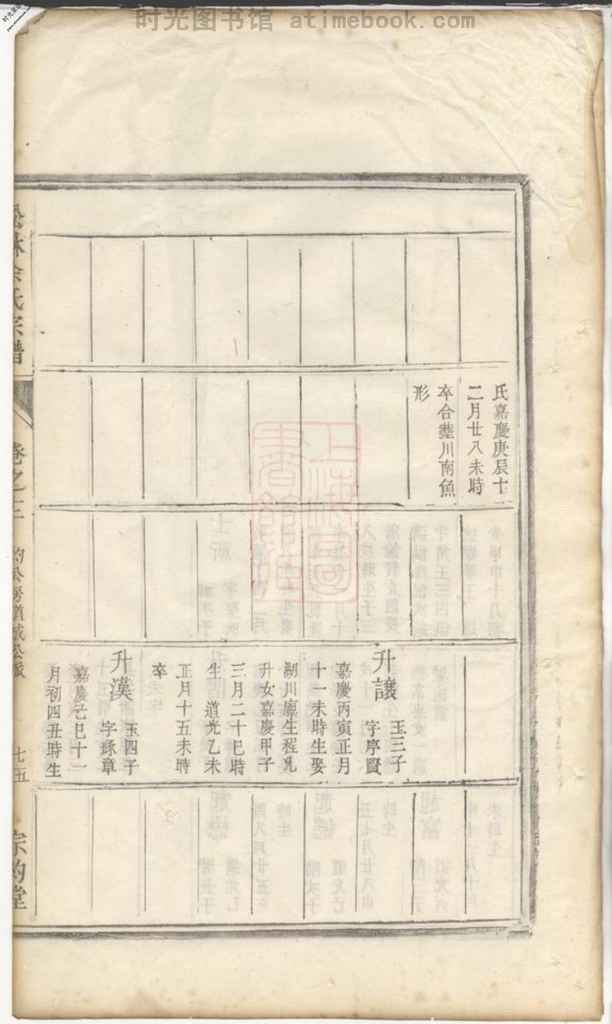 时光图书馆 atimebook.com
氏嘉慶庚辰十
二月廿八未時
卒合塟川南魚
形
升讓
玉三子
字序賢
嘉慶丙寅正月
十一未時生娶
剡川廪生程兆
升女嘉慶甲子
三月二十巳時
生 道光乙未
正月十五未時
卒
升漢
玉四子
字錦章
嘉慶己巳十一
月初四丑時生
余氏宗譜
卷之三
七五
宗的堂